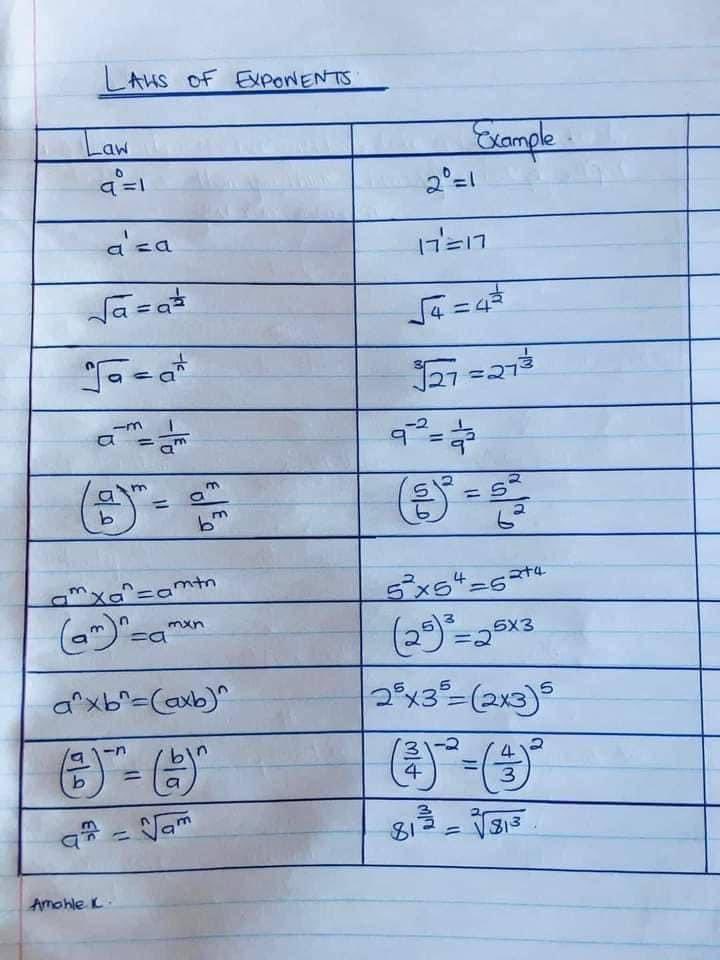 LAWS OF EXPONENTS
Law Example.
a⁰=1 2⁰=1
a¹=a 17¹=17
√a = a^(1/2) √4 = 4^(1/2)
ⁿ√a = a^(1/n) ³√27 = 27^(1/3)
a⁻ᵐ = 1/aᵐ 9⁻² = 1/9²
(a/b)ᵐ = aᵐ/bᵐ (5/6)² = 5²/6²
aᵐ×aⁿ=aᵐ⁺ⁿ 5²×5⁴=5²⁺⁴
(aᵐ)ⁿ=a^(m×n) (2⁵)³=2^(5×3)
aⁿ×bⁿ=(a×b)ⁿ 2⁵×3⁵=(2×3)⁵
(a/b)⁻ⁿ = (b/a)ⁿ (3/4)⁻² = (4/3)²
a^(m/n) = ⁿ√aᵐ 81^(3/2) = ²√81³.
Amahle K.